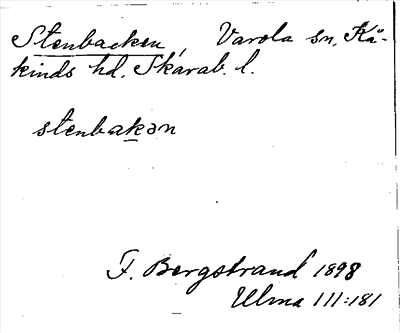 Stenbacken, Varola sn. Kå-
kinds hd. Skarab. l.
stenbakən
F. Bergstrand 1898
Ulma 111:181